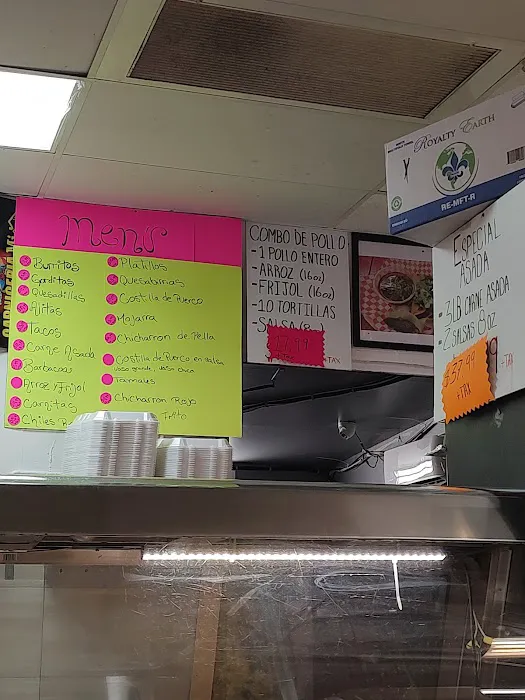 Menu
Burritos
Gorditas
Quesadillas
Alitas
Tacos
Carne Asada
Barbacoa
Arroz y Frijol
Carnitas
Chiles
Platillos
Quesabirrias
Costilla de Puerco
Mojarra
Chicharron de Pella
Costilla de Puerco en salsa
Vaso grande, Vaso Chico
Tamales
Chicharron Rojo
COMBO DE POLLO
-1 POLLO ENTERO
-ARROZ (16oz)
-FRIJOL (16oz)
-10 TORTILLAS
-SALSA
+TAX
ROYALTY EARTH
RE-MFT-R
ESPECIAL
ASADA
-3LB CARNE ASADA
-2 SALSAS 8oz
$37.99
+TAX
+TAX